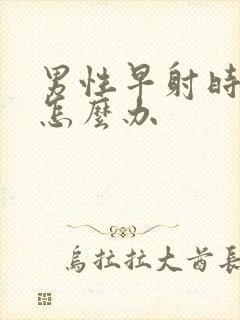 男性早射時
怎麼办
烏拉拉大酋長